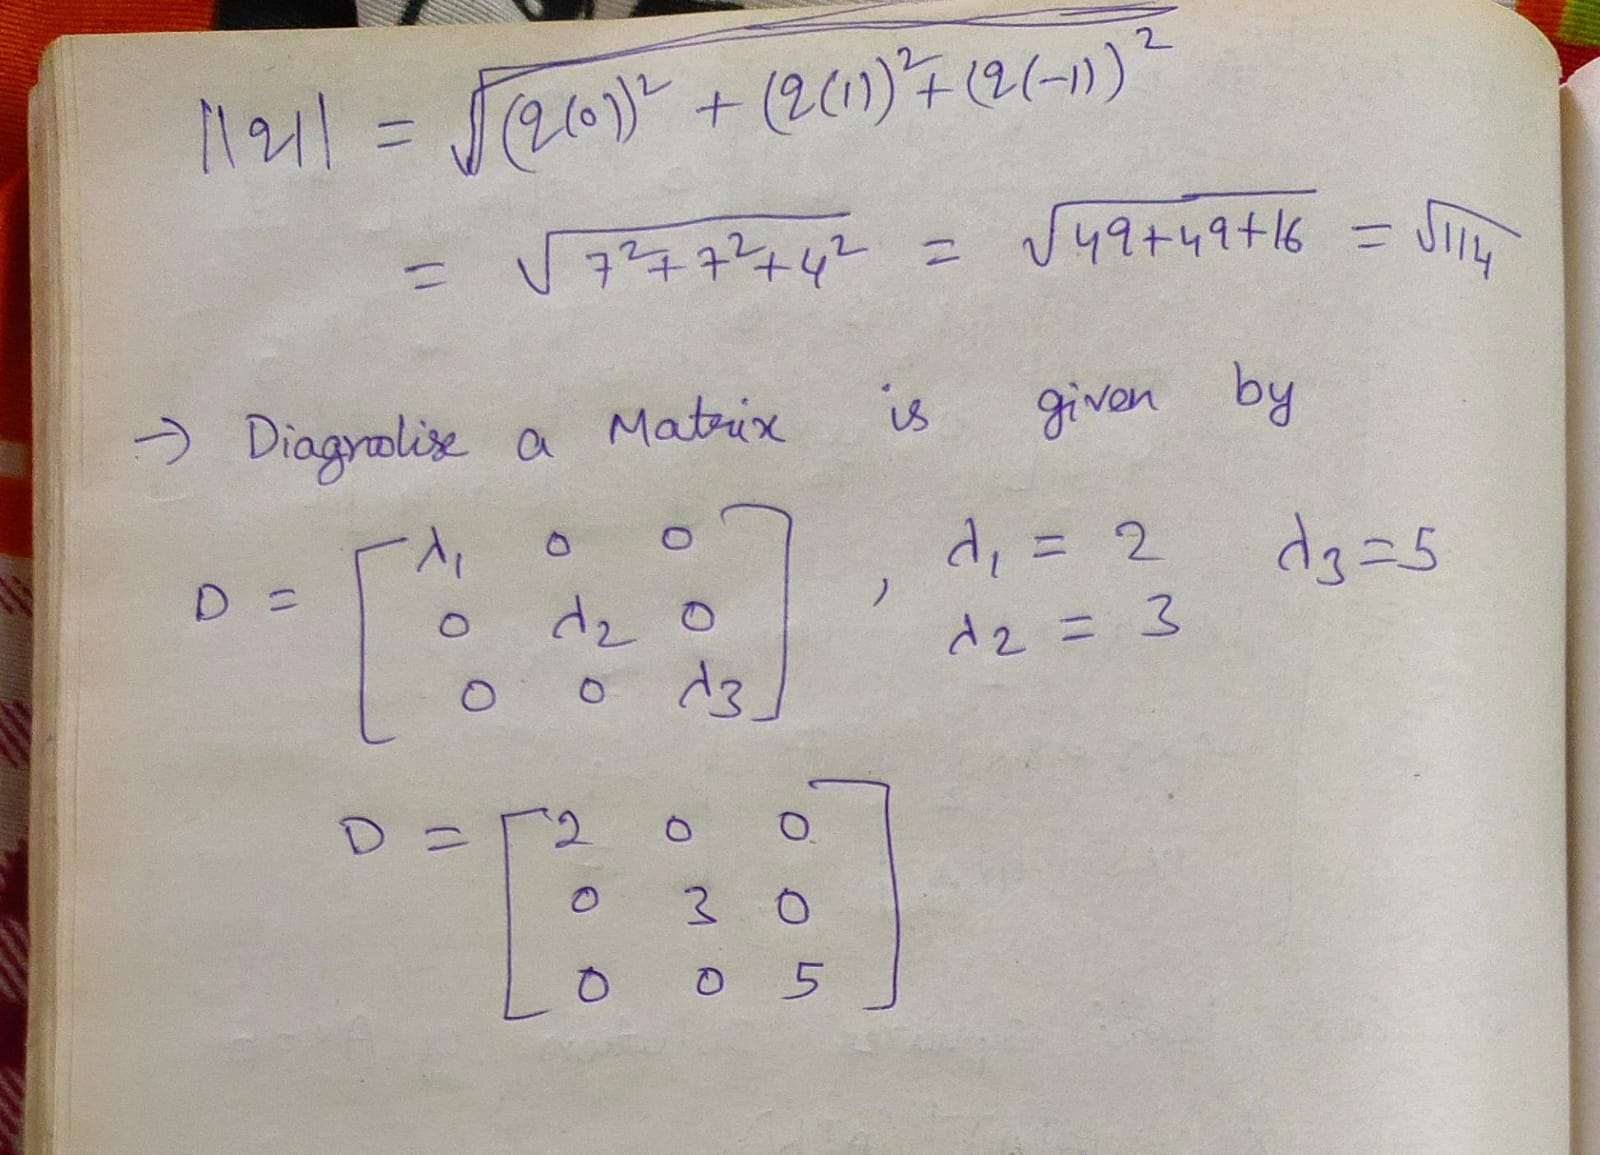 ||q|| = √(q(0))² + (q(1))² + (q(-1))²
= √7²+7²+4² = √49+49+16 = √114
→ Diagnolise a Matrix is given by
D = [λ₁ 0 0
0 λ₂ 0
0 0 λ₃] , λ₁ = 2 λ₃ = 5
λ₂ = 3
D = [2 0 0
0 3 0
0 0 5]